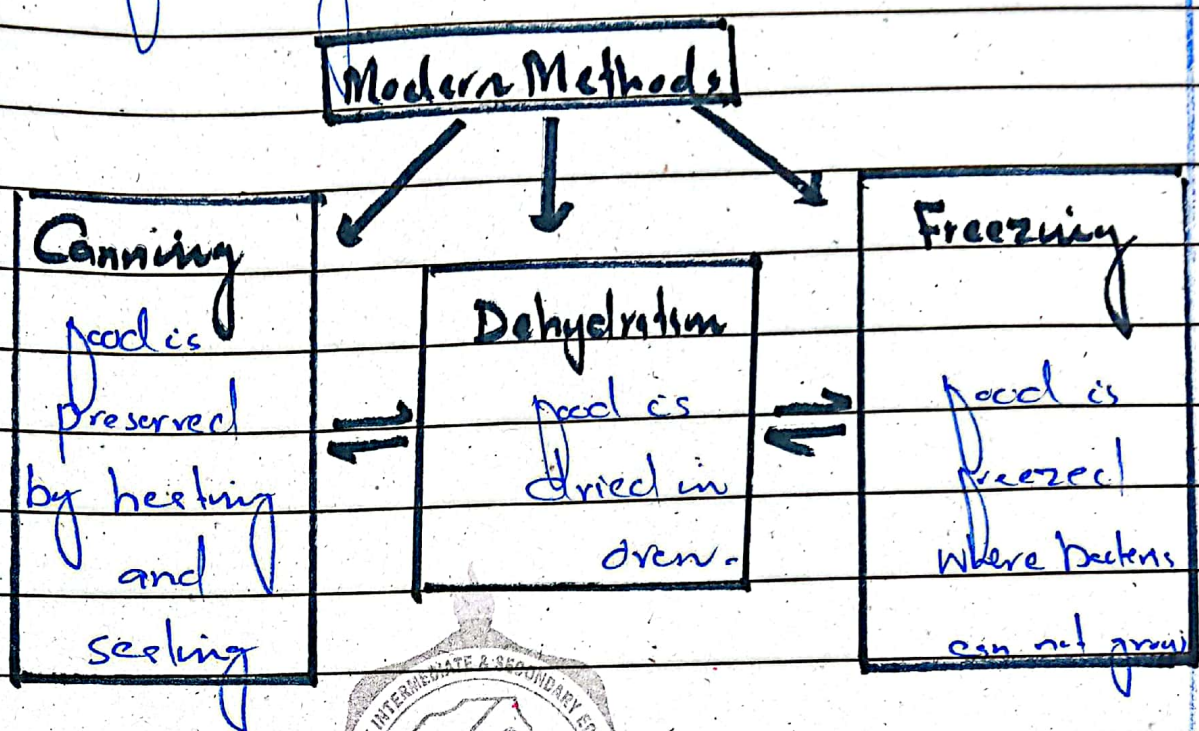 Modern Methods
Canning
food is
preserved
by heating
and
sealing
Dehydration
food is
dried in
oven.
Freezing
food is
freezed
where bacteria
can not grow
INTERMEDIATE & SECONDARY